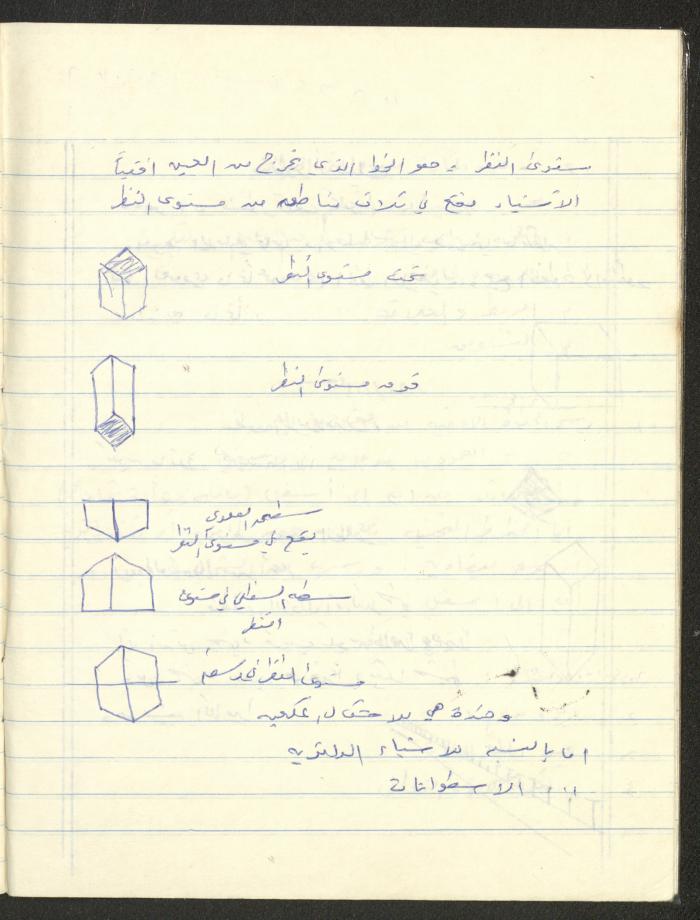 مستوى النظر : هو الخط الذي يخرج من العين افقياً
الاشياء تقع في ثلاث مناطق من مستوى النظر
تحت مستوى النظر
فوق مستوى النظر
سطحه العلوي
يقع في مستوى النظر
سطحه السفلي في مستوى
النظر
مستوى النظر في وسطه
وهذه هي للاشكال المكعبيه
اما بالنسبه للاشياء الدائريه
او الاسطوانات